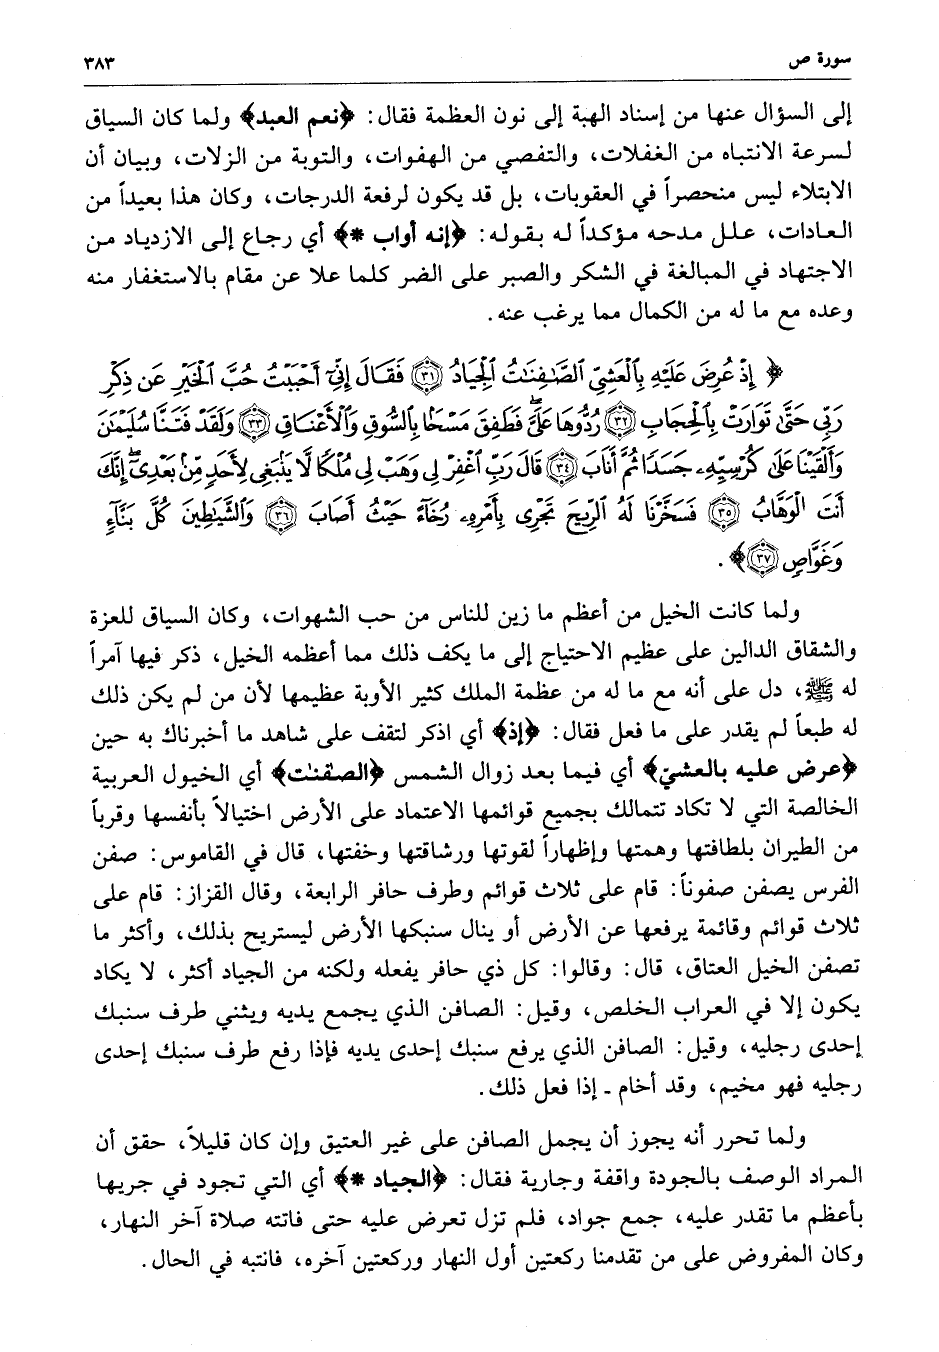 سورة ص
٣٨٣
إلى السؤال عنها من إسناد الهبة إلى نون العظمة فقال: ﴿نعم العبد﴾ ولما كان السياق
لسرعة الانتباه من الغفلات، والتفصي من الهفوات، والتوبة من الزلات، وبيان أن
الابتلاء ليس منحصراً في العقوبات، بل قد يكون لرفعة الدرجات، وكان هذا بعيداً من
العادات، علل مدحه مؤكداً له بقوله: ﴿إنه أواب *﴾ أي رجاع إلى الازدياد من
الاجتهاد في المبالغة في الشكر والصبر على الضر كلما علا عن مقام بالاستغفار منه
وعده مع ما له من الكمال مما يرغب عنه.
﴿ إِذْ عُرِضَ عَلَيْهِ بِالْعَشِيِّ الصَّافِنَاتُ الْجِيَادُ ﴿٣١﴾ فَقَالَ إِنِّي أَحْبَبْتُ حُبَّ الْخَيْرِ عَن ذِكْرِ
رَبِّي حَتَّى تَوَارَتْ بِالْحِجَابِ ﴿٣٢﴾ رُدُّوهَا عَلَيَّ فَطَفِقَ مَسْحًا بِالسُّوقِ وَالْأَعْنَاقِ ﴿٣٣﴾ وَلَقَدْ فَتَنَّا سُلَيْمَٰنَ
وَأَلْقَيْنَا عَلَىٰ كُرْسِيِّهِ جَسَدًا ثُمَّ أَنَابَ ﴿٣٤﴾ قَالَ رَبِّ اغْفِرْ لِي وَهَبْ لِي مُلْكًا لَّا يَنْبَغِي لِأَحَدٍ مِّنْ بَعْدِي إِنَّكَ
أَنتَ الْوَهَّابُ ﴿٣٥﴾ فَسَخَّرْنَا لَهُ الرِّيحَ تَجْرِي بِأَمْرِهِ رُخَاءً حَيْثُ أَصَابَ ﴿٣٦﴾ وَالشَّيَاطِينَ كُلَّ بَنَّاءٍ
وَغَوَّاصٍ ﴿٣٧﴾ ﴾.
ولما كانت الخيل من أعظم ما زين للناس من حب الشهوات، وكان السياق للعزة
والشقاق الدالين على عظيم الاحتياج إلى ما يكف ذلك مما أعظمه الخيل، ذكر فيها آمراً
له ﷺ، دل على أنه مع ما له من عظمة الملك كثير الأوبة عظيمها لأن من لم يكن ذلك
له طبعاً لم يقدر على ما فعل فقال: ﴿إذ﴾ أي اذكر لتقف على شاهد ما أخبرناك به حين
﴿عرض عليه بالعشيّ﴾ أي فيما بعد زوال الشمس ﴿الصفنٰت﴾ أي الخيول العربية
الخالصة التي لا تكاد تتمالك بجميع قوائمها الاعتماد على الأرض اختيالاً بأنفسها وقرباً
من الطيران بلطافتها وهمتها وإظهاراً لقوتها ورشاقتها وخفتها، قال في القاموس: صفن
الفرس يصفن صفوناً: قام على ثلاث قوائم وطرف حافر الرابعة، وقال القزاز: قام على
ثلاث قوائم وقائمة يرفعها عن الأرض أو ينال سنبكها الأرض ليستريح بذلك، وأكثر ما
تصفن الخيل العتاق، قال: وقالوا: كل ذي حافر يفعله ولكنه من الجياد أكثر، لا يكاد
يكون إلا في العراب الخلص، وقيل: الصافن الذي يجمع يديه ويثني طرف سنبك
إحدى رجليه، وقيل: الصافن الذي يرفع سنبك إحدى يديه فإذا رفع طرف سنبك إحدى
رجليه فهو مخيم، وقد أخام - إذا فعل ذلك.
ولما تحرر أنه يجوز أن يجمل الصافن على غير العتيق وإن كان قليلاً، حقق أن
المراد الوصف بالجودة واقفة وجارية فقال: ﴿الجياد *﴾ أي التي تجود في جريها
بأعظم ما تقدر عليه، جمع جواد، فلم تزل تعرض عليه حتى فاتته صلاة آخر النهار،
وكان المفروض على من تقدمنا ركعتين أول النهار وركعتين آخره، فانتبه في الحال.